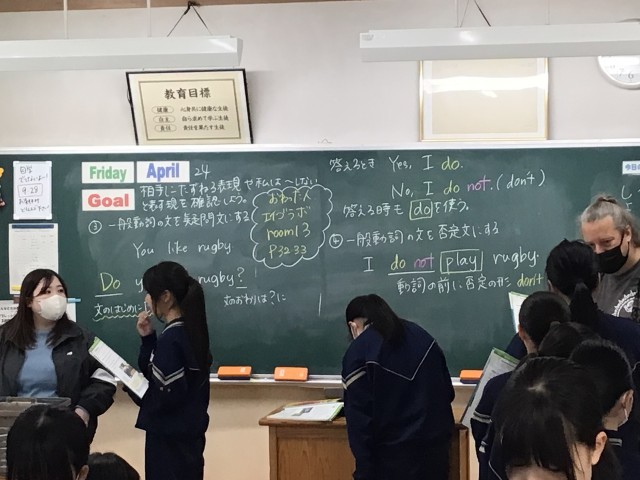 教育目標
健康 心身共に健康な生徒
自主 自ら求めて学ぶ生徒
責任 責任を果たす生徒
Friday April 24
Goal
相手にたずねる表現や私は〜しない
と表す現を確認しよう。
③ 一般動詞の文を疑問文にする
You like rugby.
Do y rugby?
文のはじめに
文のおわりは?に
room13
P.32.33
答えるとき Yes, I do.
No, I do not. (don't)
答える時も do を使う。
④ 一般動詞の文を否定文にする
I do not play rugby.
動詞の前に否定の形 don't